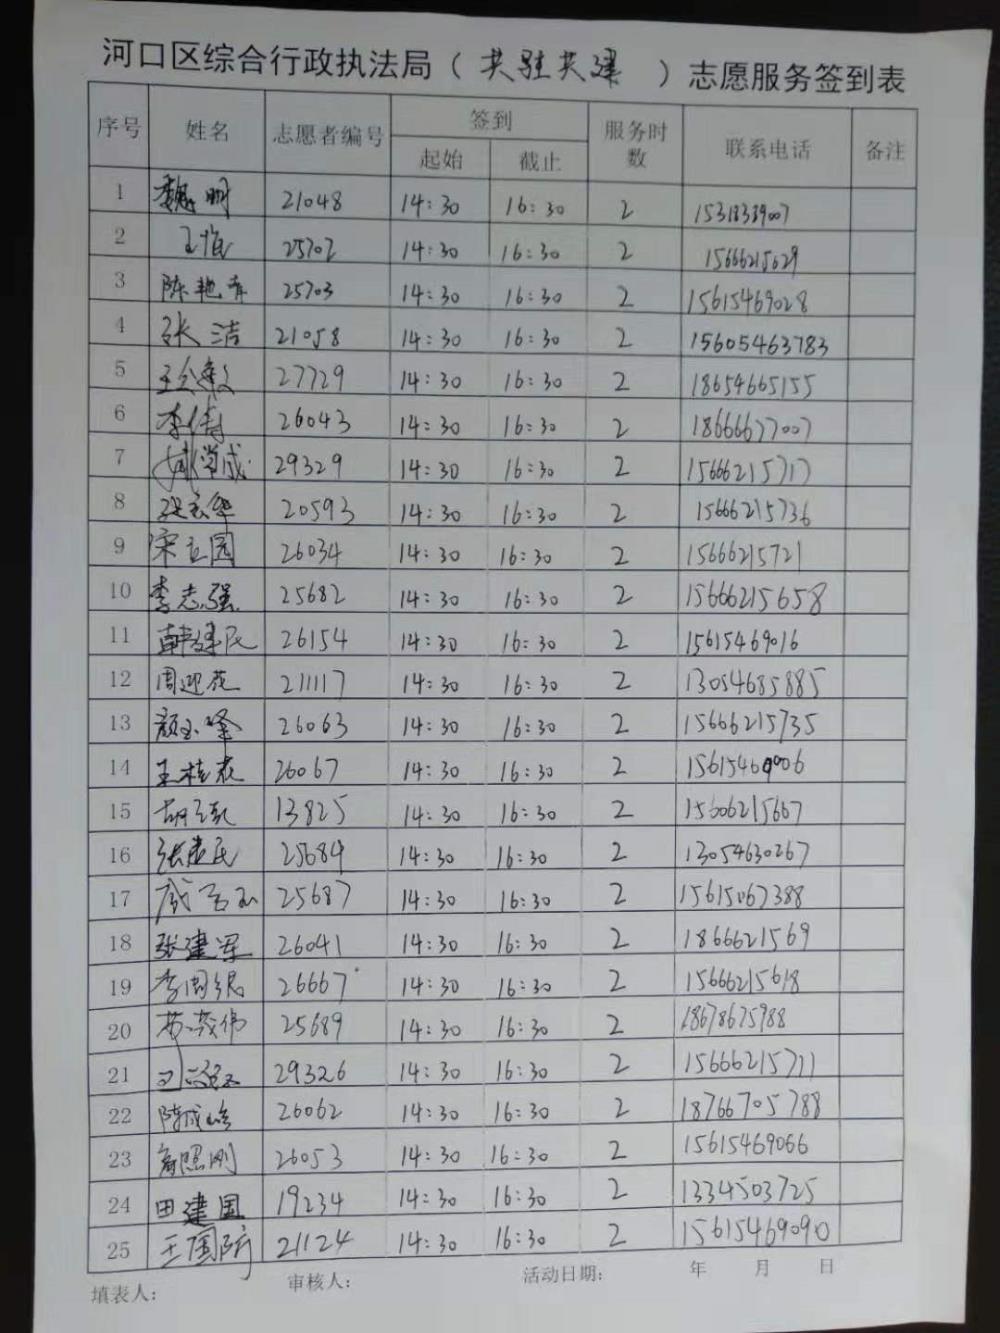 河口区综合行政执法局（共驻共建）志愿服务签到表
序号 姓名 志愿者编号 签到 服务时数 联系电话 备注
起始 截止
1 魏刚 21048 14:30 16:30 2 15318339007
2 王恒 25702 14:30 16:30 2 15666215629
3 陈艳青 25703 14:30 16:30 2 15615469028
4 张洁 21058 14:30 16:30 2 15605463783
5 27729 14:30 16:30 2 18654665155
6 李倩 26043 14:30 16:30 2 18666677007
7 29329 14:30 16:30 2 15666215717
8 20593 14:30 16:30 2 15666215736
9 宋立园 26034 14:30 16:30 2 15666215721
10 李志强 25682 14:30 16:30 2 15666215658
11 韩建民 26154 14:30 16:30 2 15615469016
12 周迎花 21117 14:30 16:30 2 13054685885
13 颜玉峰 26063 14:30 16:30 2 15666215735
14 王桂花 26067 14:30 16:30 2
15 13825 14:30 16:30 2 15606215667
16 张建民 25684 14:30 16:30 2 13054630267
17 25687 14:30 16:30 2 15615067388
18 张建军 26041 14:30 16:30 2 1866621569
19 26667 14:30 16:30 2 15666215618
20 25689 14:30 16:30 2 18678675988
21 29326 14:30 16:30 2 15666215711
22 26062 14:30 16:30 2 18766705788
23 26053 14:30 16:30 2 15615469066
24 田建国 19234 14:30 16:30 2 1334503725
25 王国防 21124 14:30 16:30 2 15615469090
填表人: 审核人: 活动日期: 年 月 日